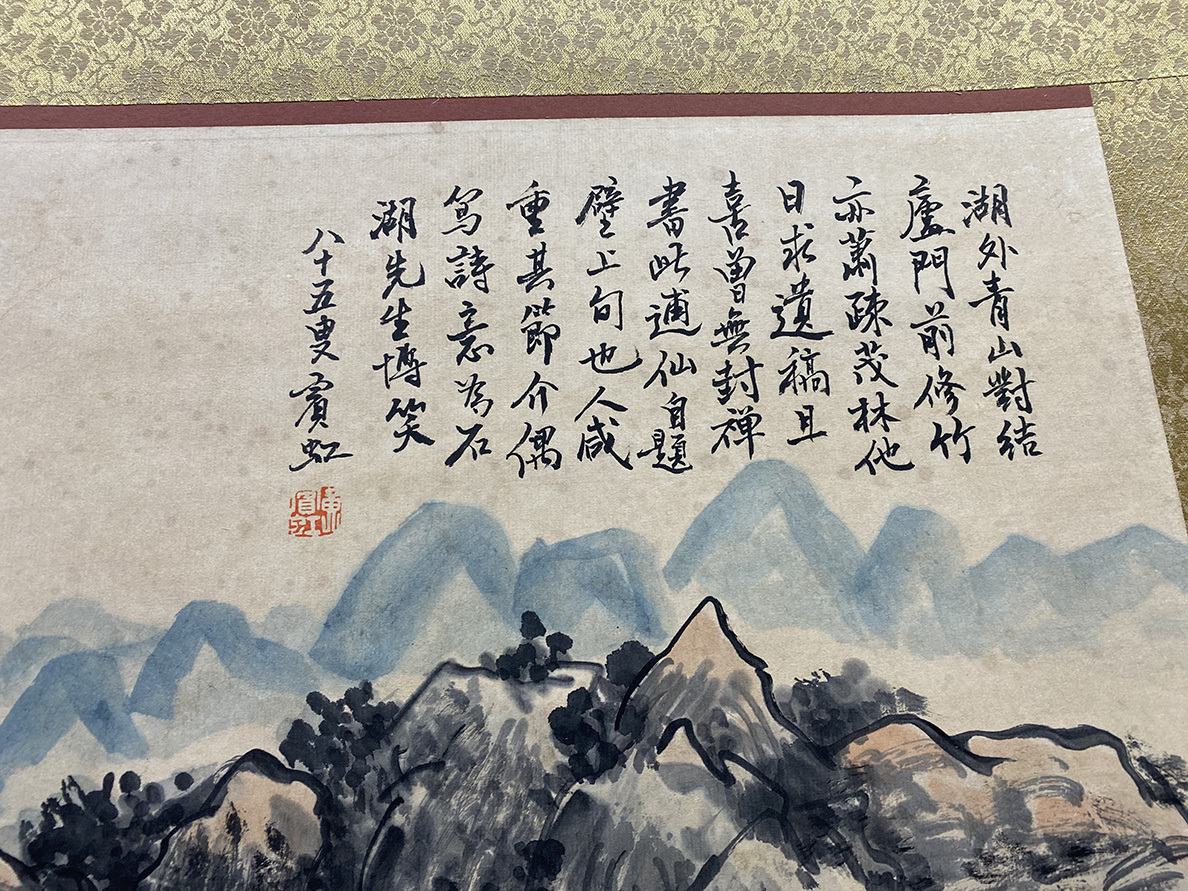 湖外青山對結
廬門前修竹
亦蕭疎茂林他
日求遺稿且
喜曾無封禅
書此逋仙自題
壁上句也人咸
重其節介偶
寫詩意為石
湖先生博笑
八十五叟賓虹
黃賓虹